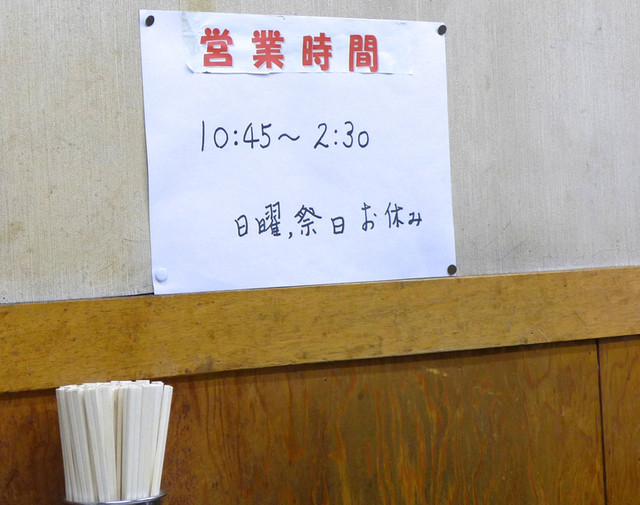 営業時間
10:45〜2:30
日曜,祭日お休み